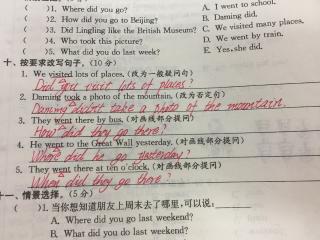 (  )1. Where did you go?
A. I went to school.
(  )2. How did you go to Beijing?
B. Daming did.
(  )3. Did Lingling like the British Museum?
C. We visited many places.
(  )4. Who took this picture?
D. We went by train.
(  )5. What did you do last week?
E. Yes, she did.
十、按要求改写句子。(10 分)
1. We visited lots of places. (改为一般疑问句)
Did you visit lots of places?
2. Daming took a photo of the mountain. (改为否定句)
Daming didn't take a photo of the mountain.
3. They went there by bus. (对画线部分提问)
How did they go there?
4. He went to the Great Wall yesterday. (对画线部分提问)
Where did he go yesterday?
5. They went there at ten o'clock. (对画线部分提问)
When did they go there?
十一、情景选择。(5 分)
(  )1. 当你想知道朋友上周末去了哪里,可以说:
A. Where did you go last weekend?
B. What did you do last weekend?